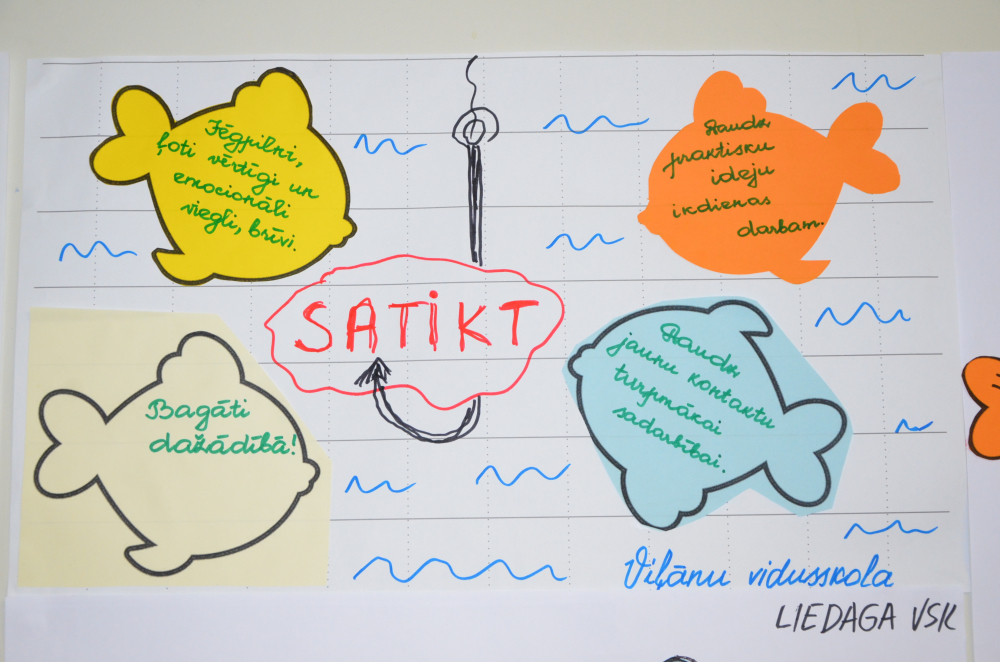 Jēgpilni,
ļoti vērtīgi un
emocionāli
viegli, brīvi.
Raudz
praktisku
ideju
ikdienas
darbam.
SATIKT
Bagāti
dažādībā!
Raudz
jaunu kontaktu
turpmākai
sadarbībai.
Viļānu vidusskola
LIEDAGA VSK